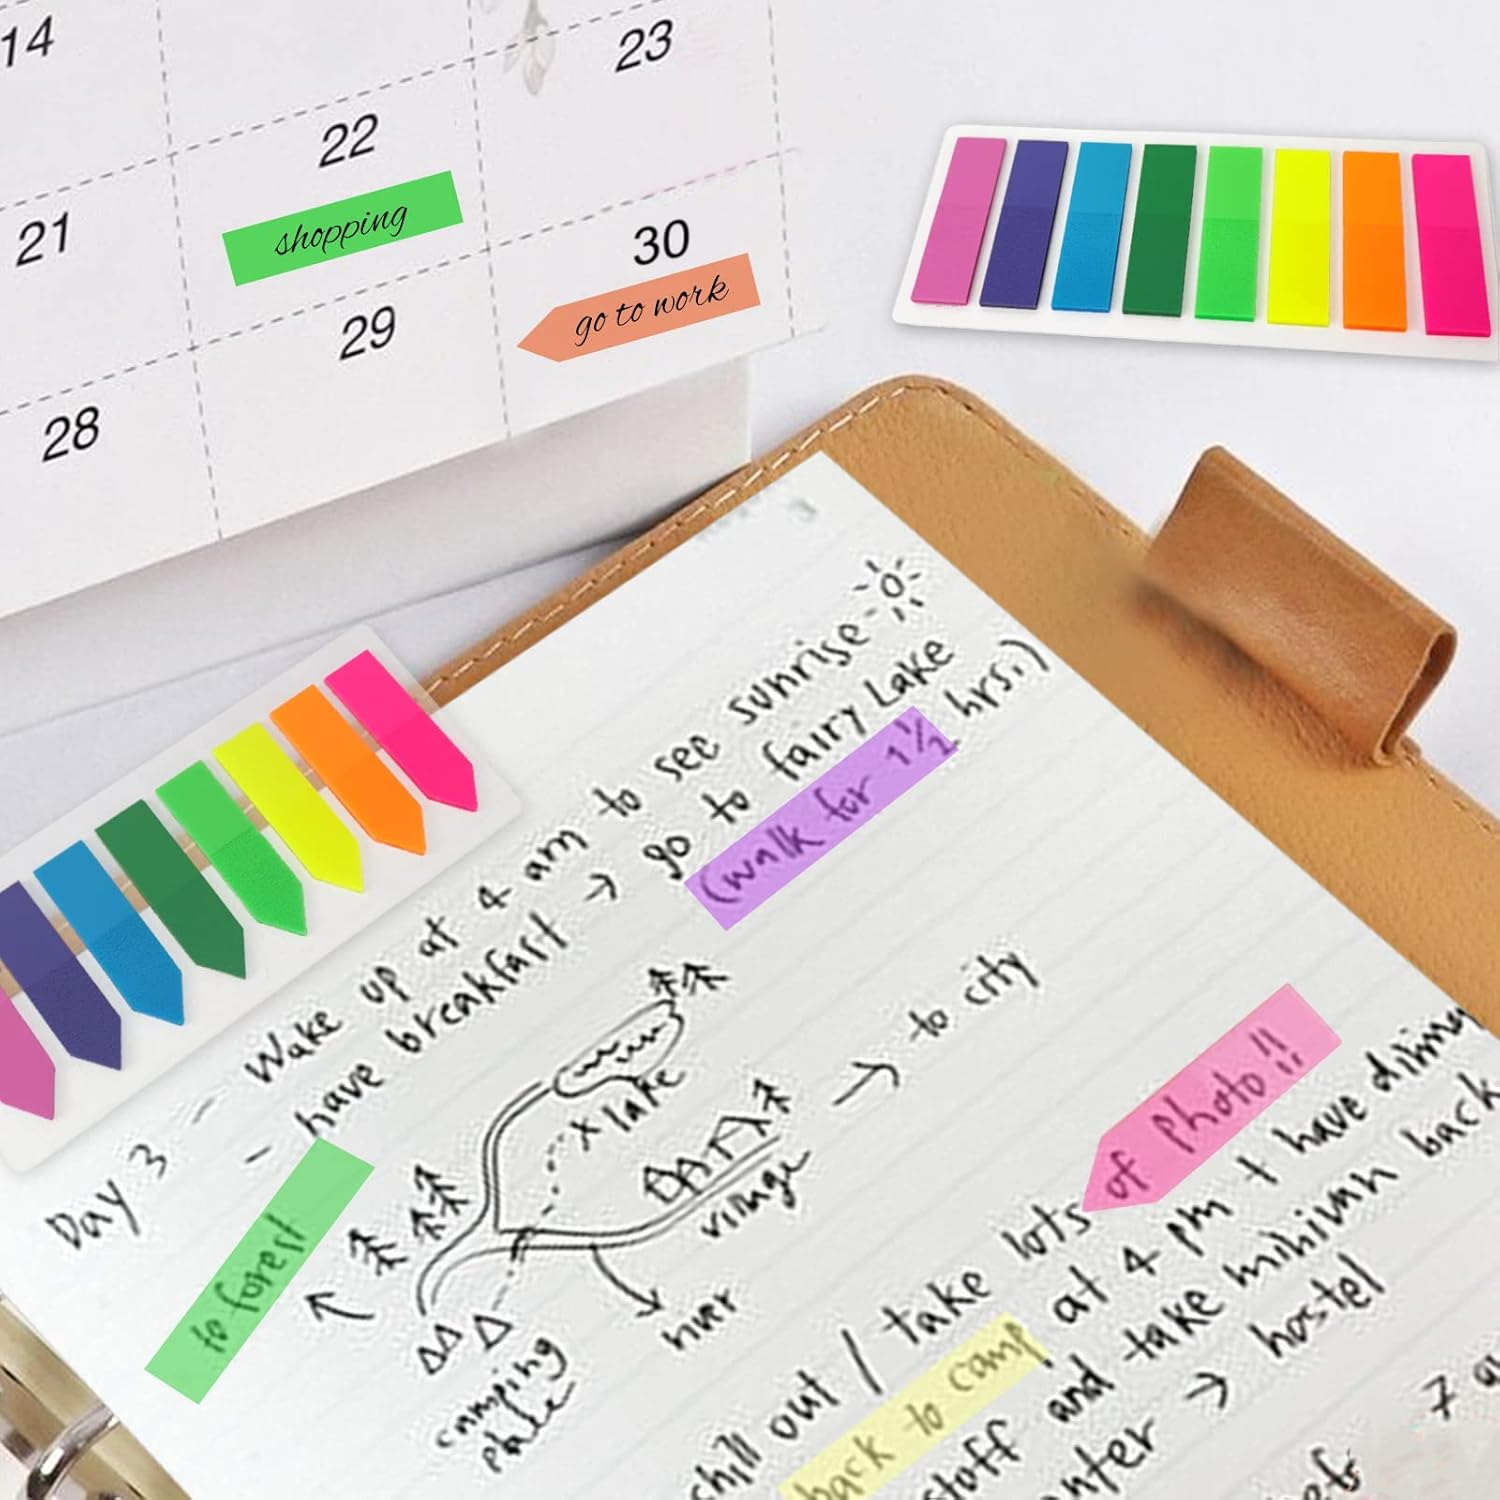 14
23
22
shopping
21
30
go to work
29
28
Day 3 - Wake up at 4 am to see sunrise
- have breakfast → go to fairy Lake
(walk for 1½ hrs.)
lake
→ to city
village
to forest
river
camping
chill out / take lots of photo !!
back to camp at 4 pm + have
stuff and take minivan back
→ hostel
7